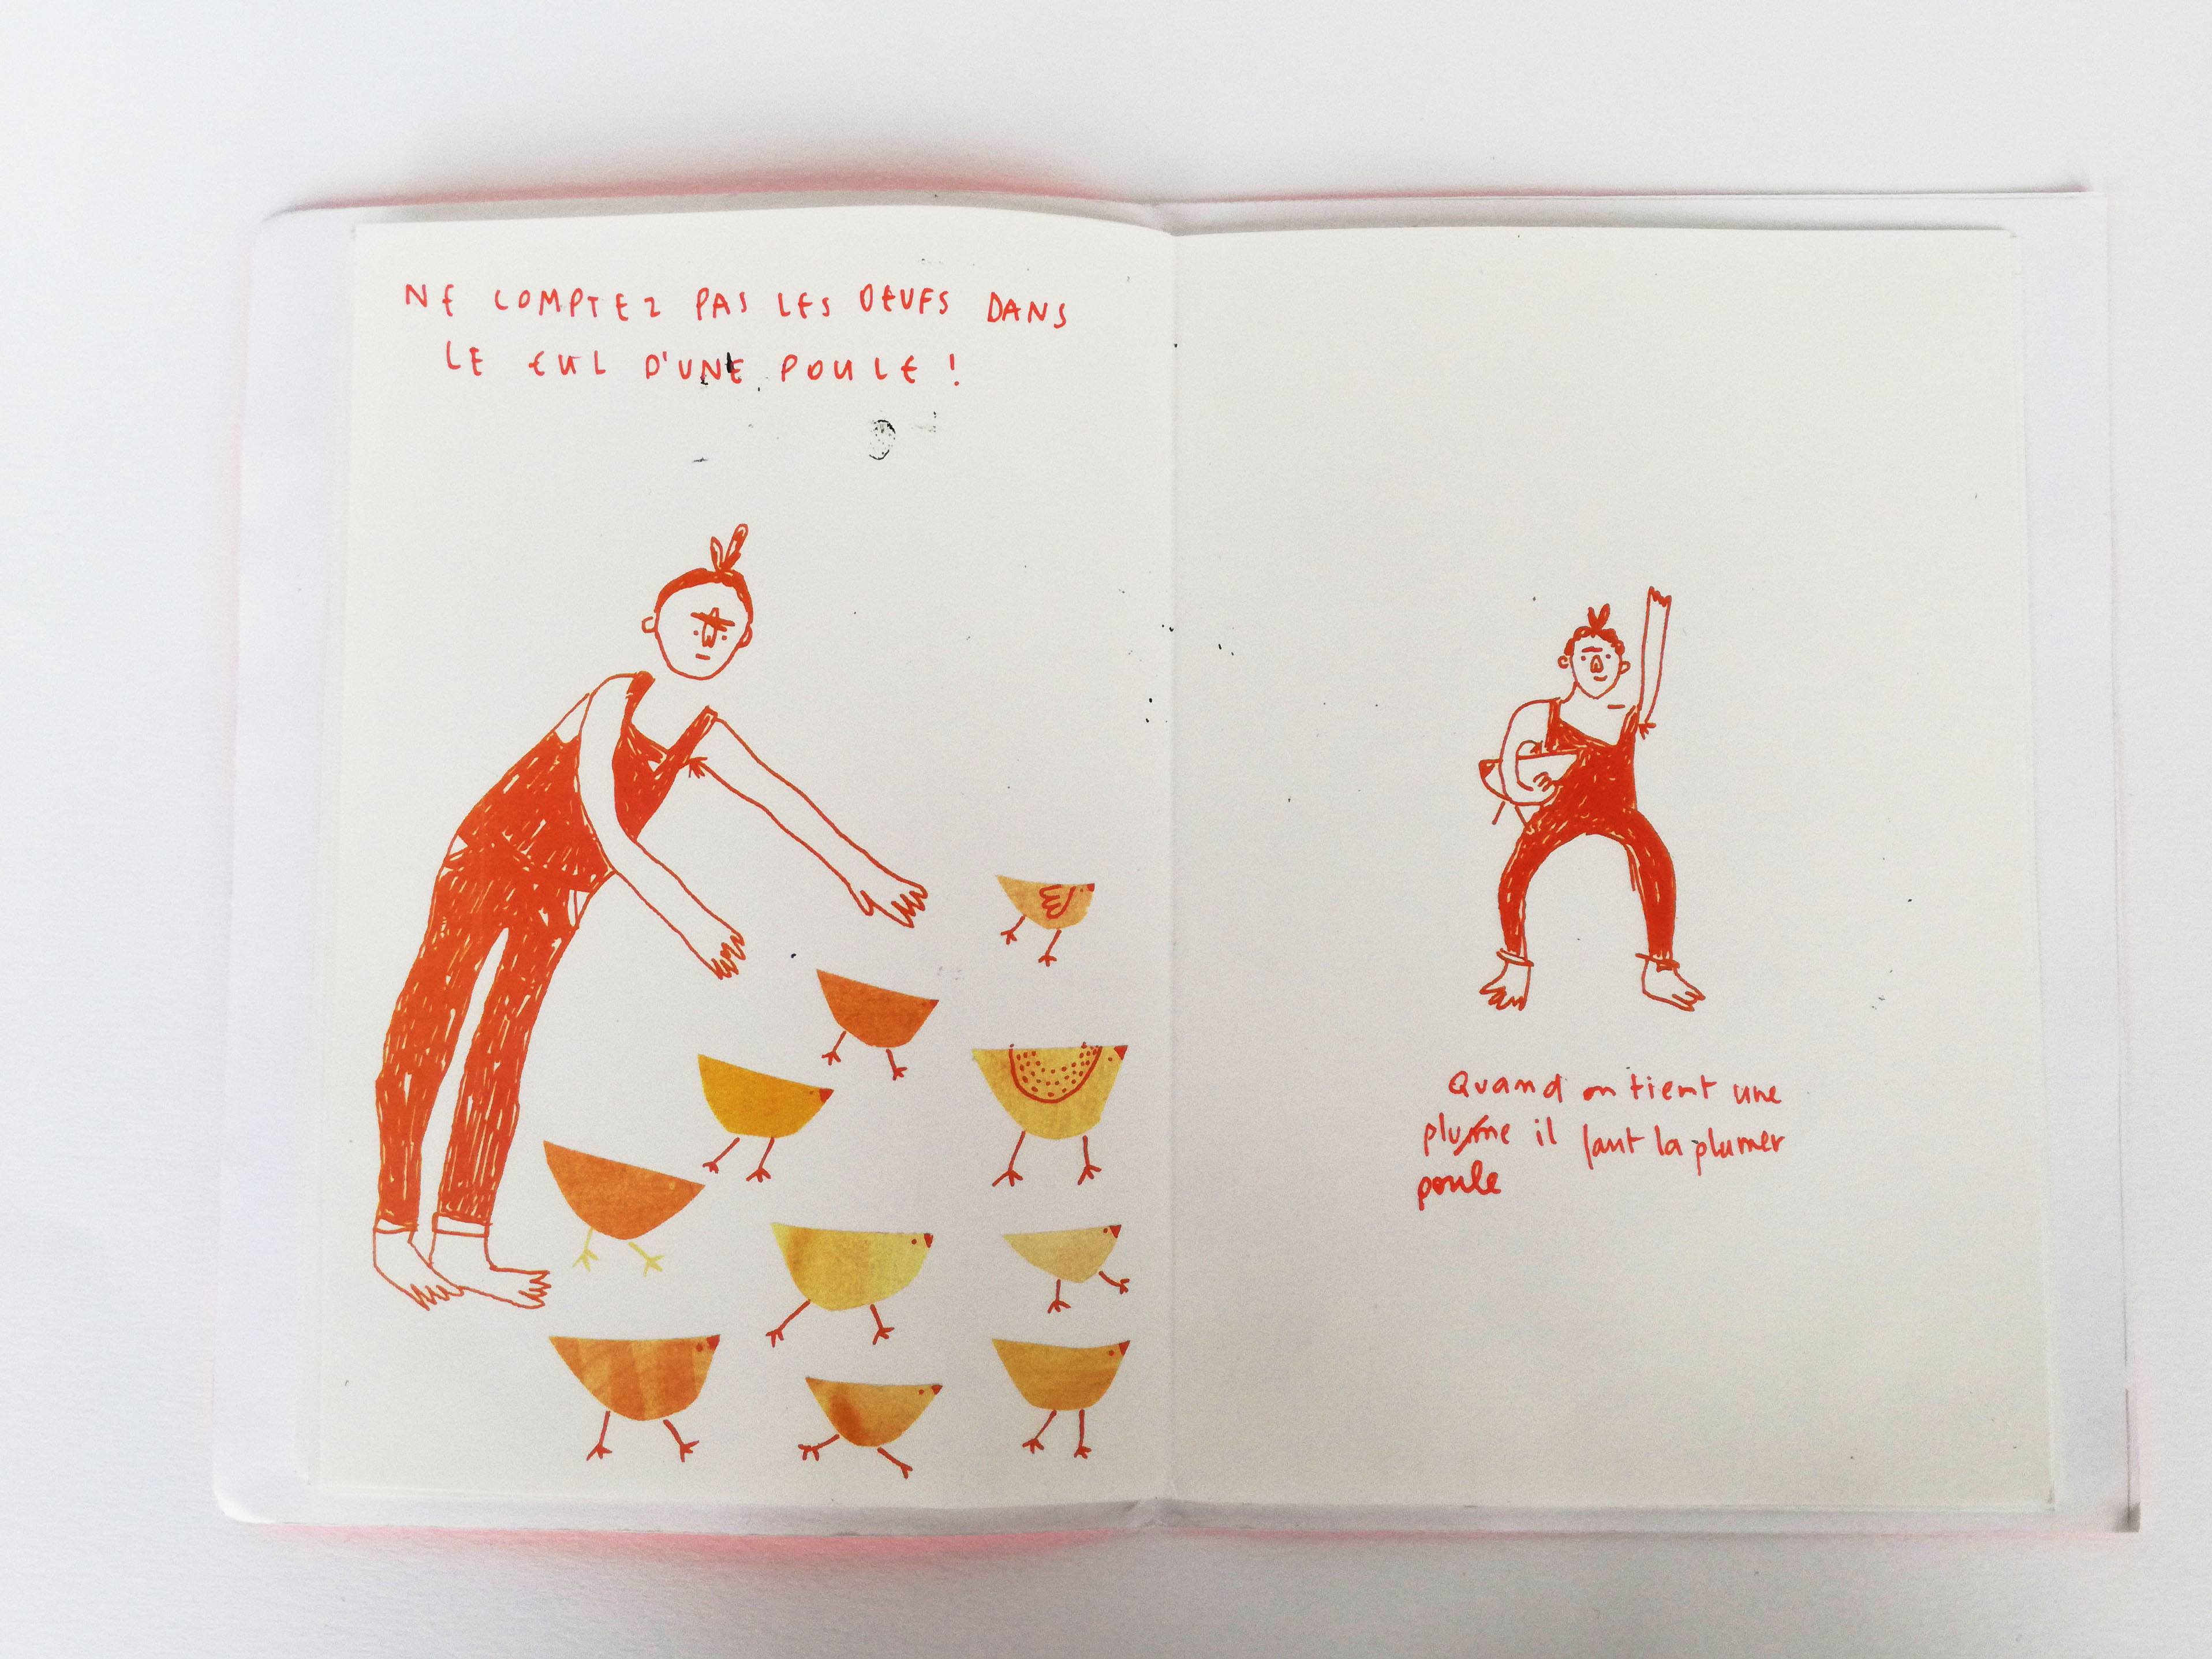 NE COMPTEZ PAS LES OEUFS DANS
LE CUL D'UNE POULE !
Quand on tient une
plume il faut la plumer
poule